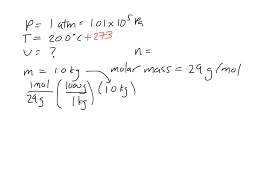 P = 1 atm = 1.01 x 10⁵ Pa
T = 20.0°C + 273
V = ? n =
m = 1.0 kg molar mass = 29 g/mol
1 mol / 29 g (1000 g / 1 kg) (1.0 kg)